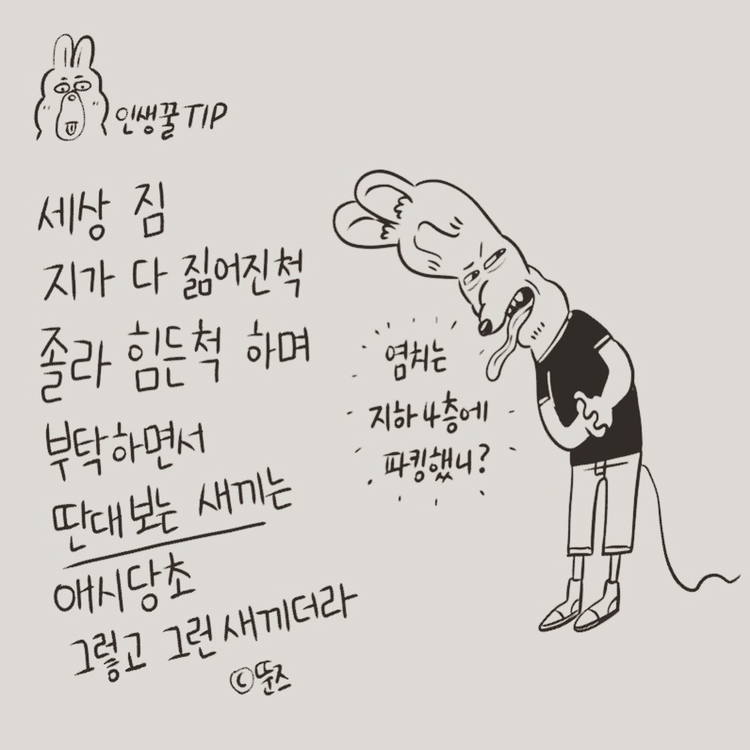 인생꿀TIP
세상 짐
지가 다 짊어진척
졸라 힘든척 하며
부탁하면서
딴대보는 새끼는
애시당초
그렇고 그런새끼더라
©뚠즈
염치는
지하4층에
파킹했니?